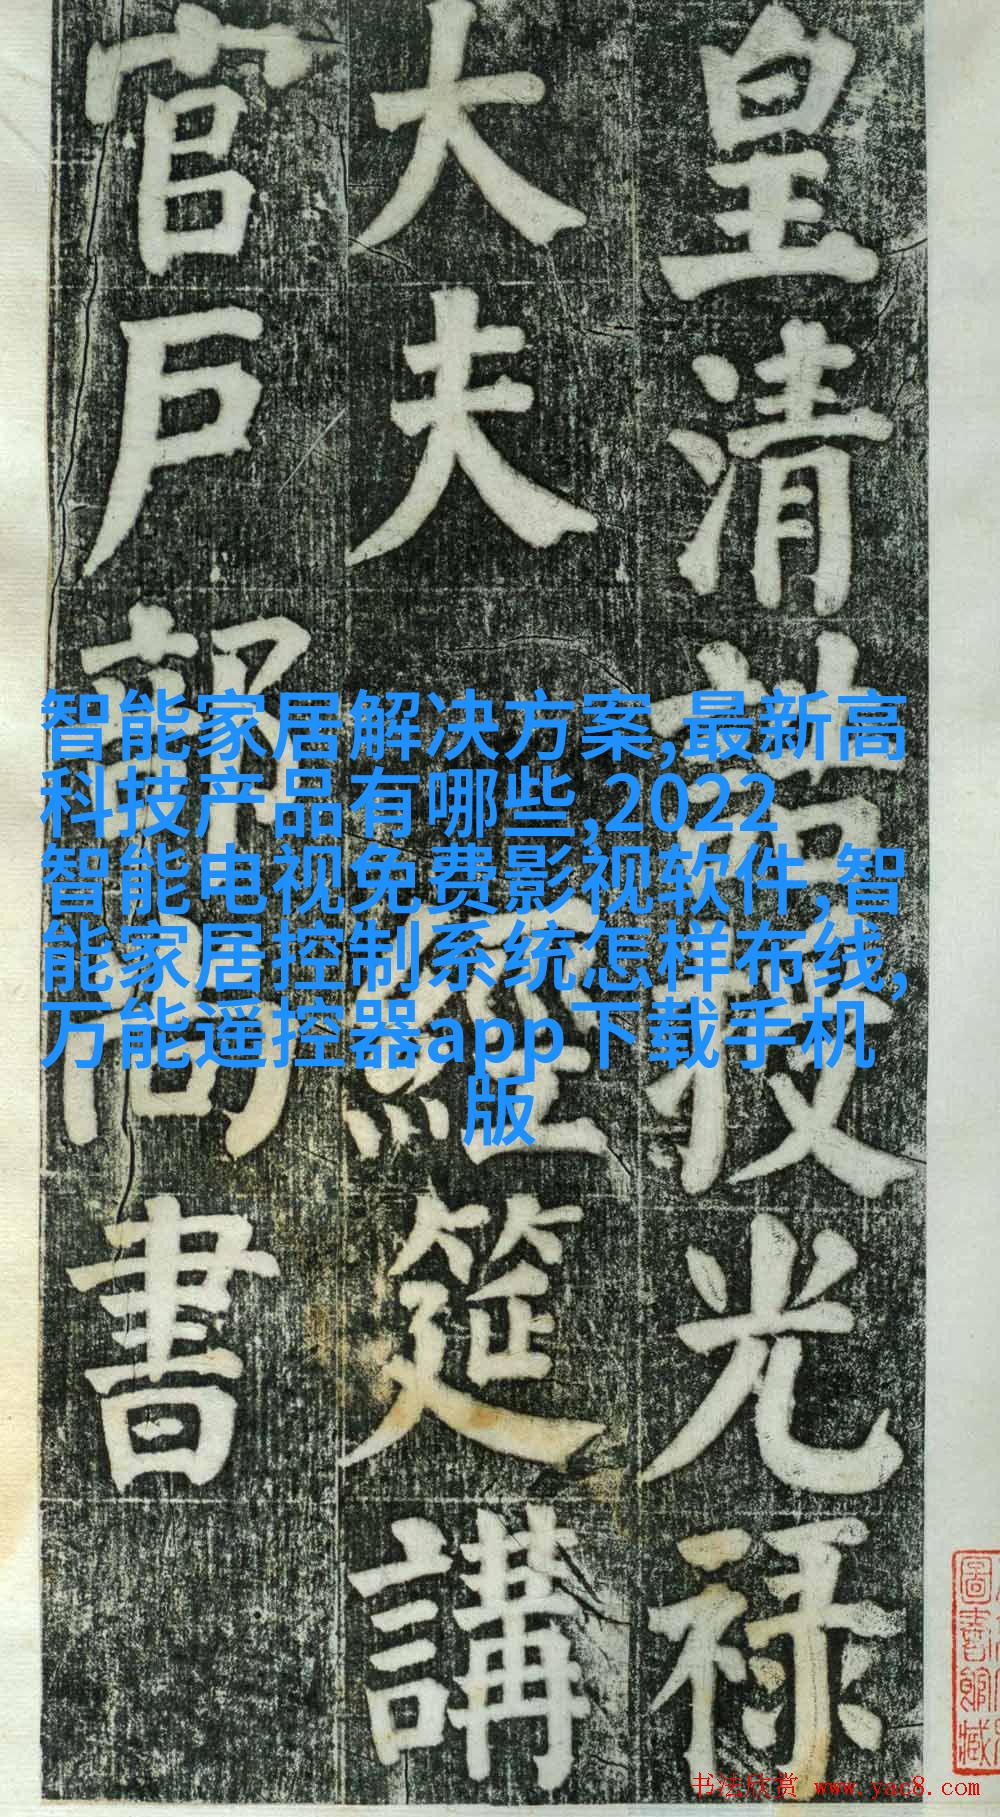 皇清授光禄
大夫
經筵講
官戶部尚書
智能家居解决方案,最新高
科技产品有哪些,2022
智能电视免费影视软件,智
能家居控制系统怎样布线,
万能遥控器app下载手机
版
圖書館藏
书法欣赏 www.yac8.com